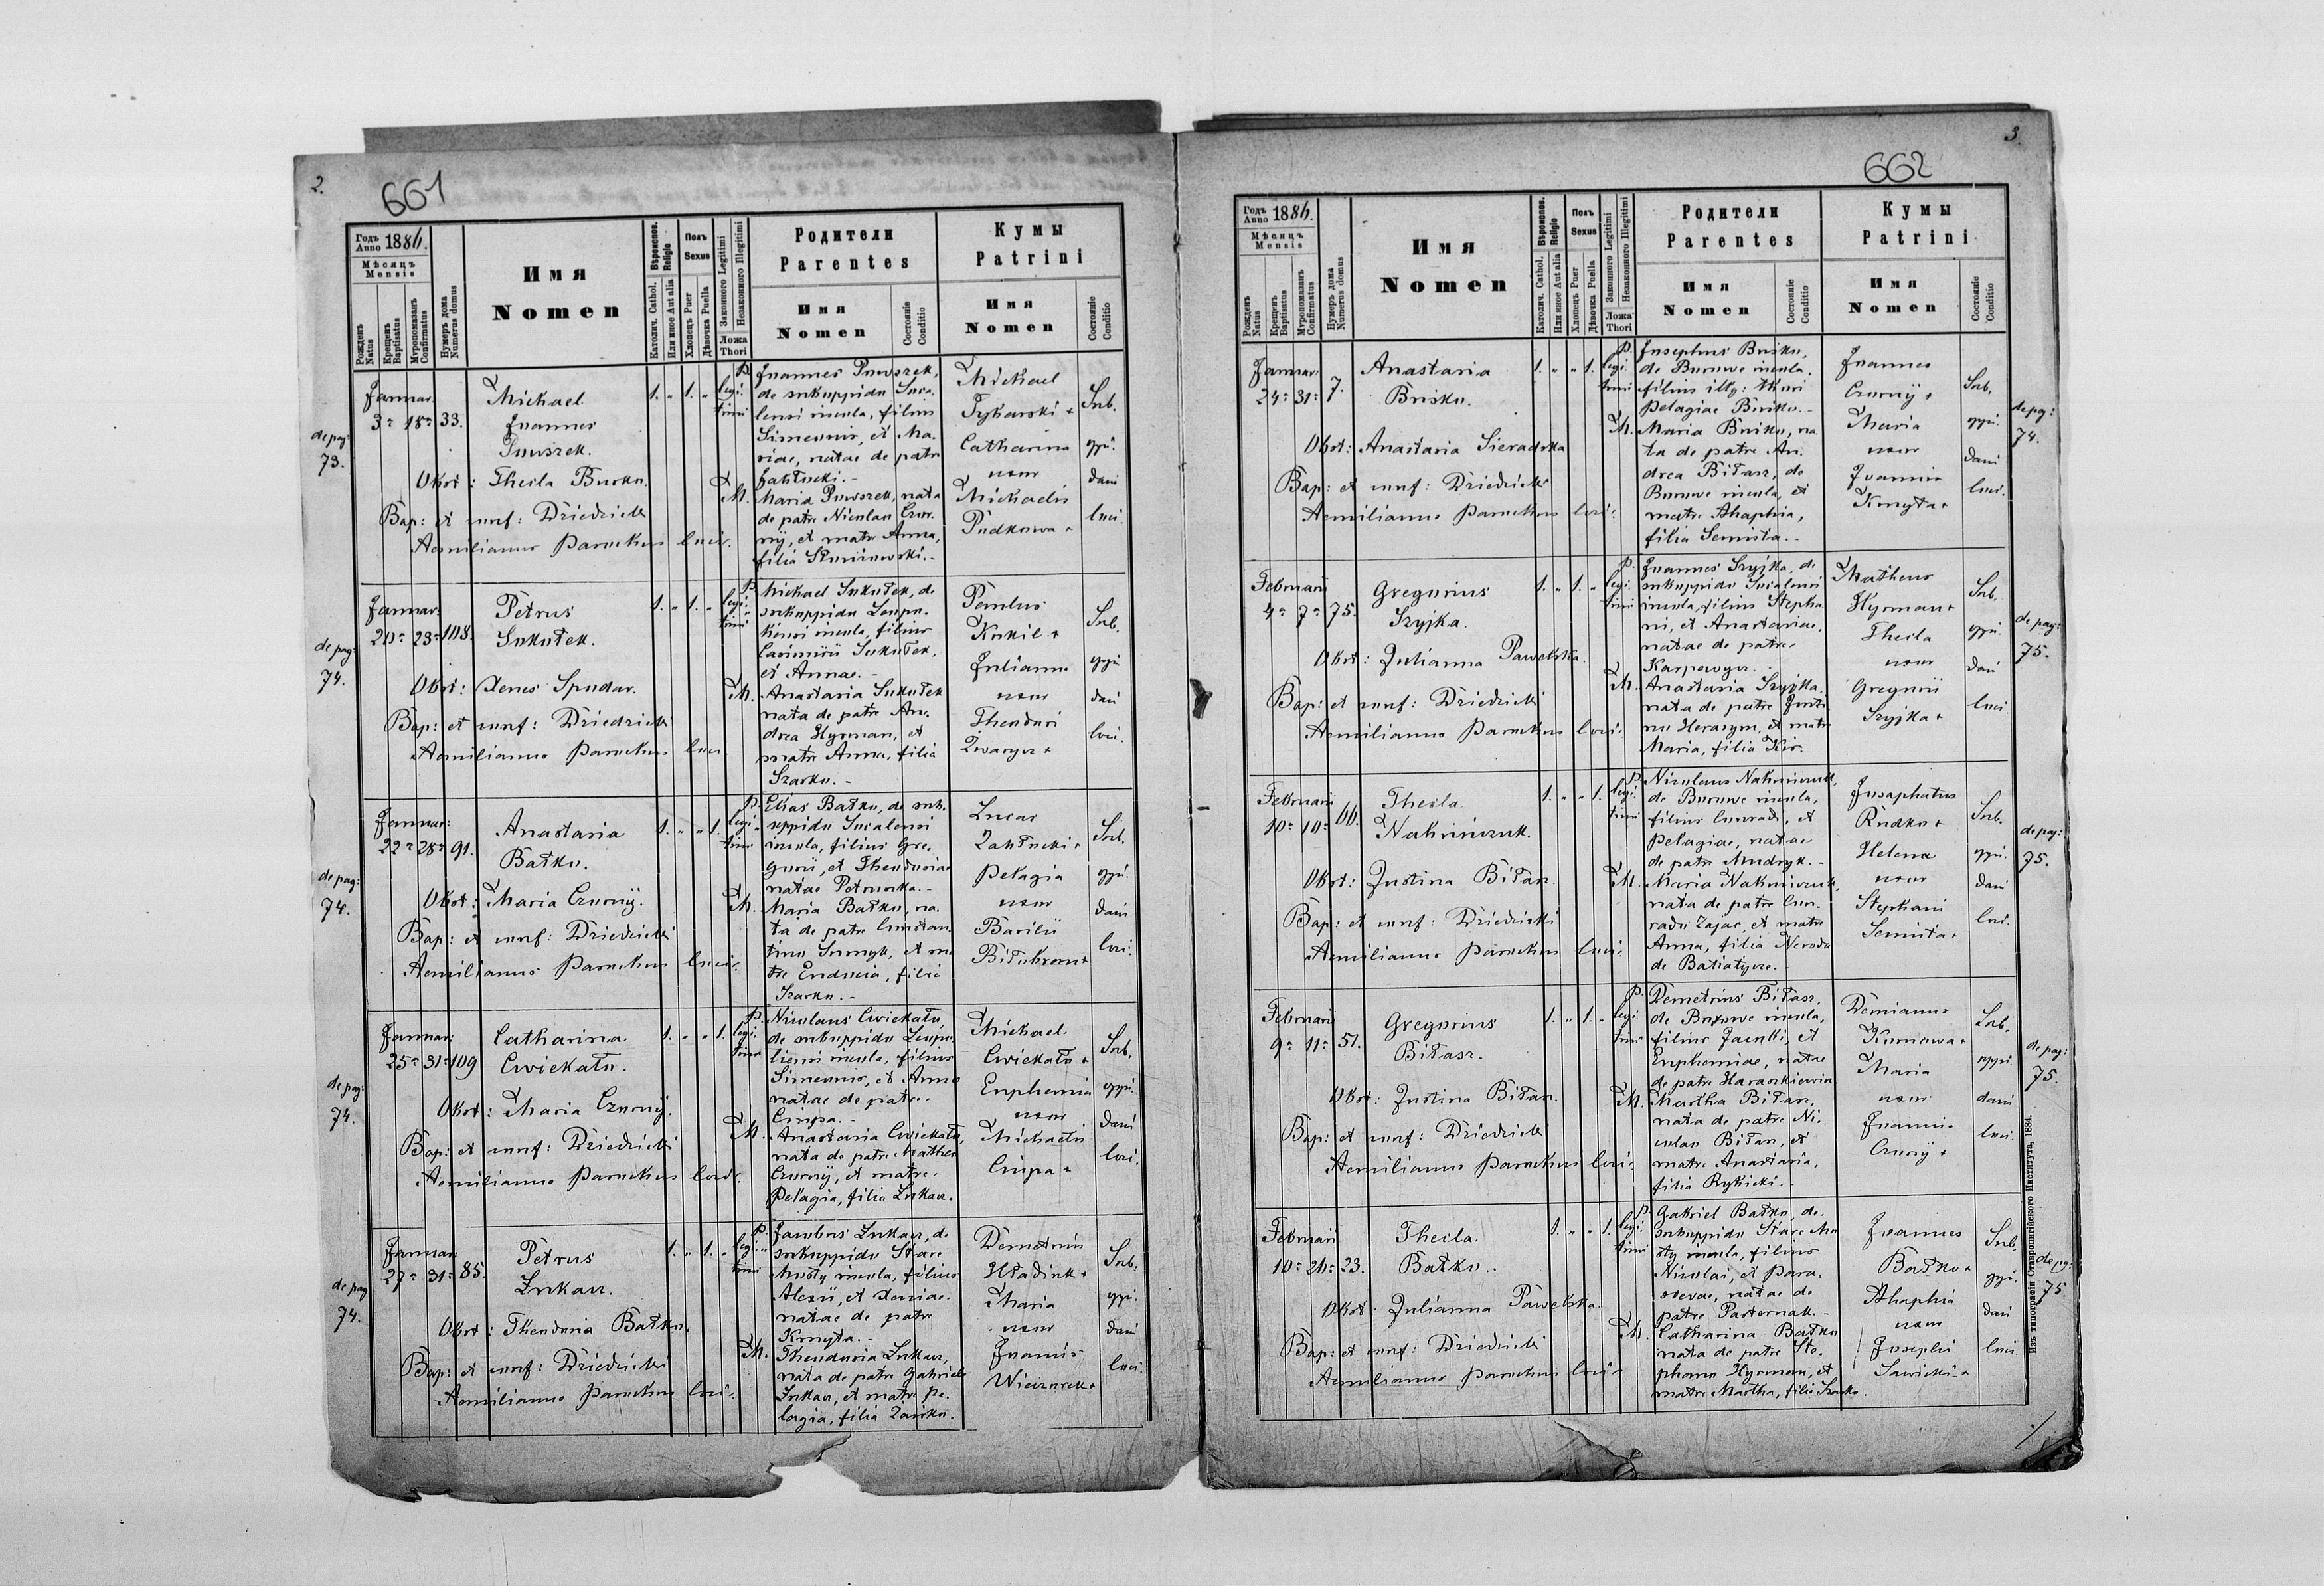 2.
661
Годъ Anno 1886.
Мѣсяцъ Mensis
Рожденъ Natus
Крещенъ Baptisatus
Мѵропомазанъ Confirmatus
Нумеръ дома Numerus domus
Имя
Nomen
Вѣроиспов. Religio
Католич. Cathol.
Или иное Aut alia
Полъ Sexus
Хлопецъ Puer
Дѣвочка Puella
Законного Legitimi
Незаконного Illegitimi
Ложа Thori
Родители
Parentes
Имя
Nomen
Состояніе Conditio
Кумы
Patrini
Имя
Nomen
Состояніе Conditio
de pag: 73.
Januar.
3a 18a 33.
Michael
Joannes
Powszek.
Obst: Thecla Burko.
Bap: et conf: Dziedzicki
Aemilianus Parochus loci.
1. „ 1. „ legi-
timi
P. Joannes Powszek,
de suboppido Soca-
lensi incola, filius
Simeonis, et Ma-
riae, natae de patre
M. Maria Powszek, nata
de patre Nicolao Czor-
nij, et matre Anna,
filia
Michael
+
Catharina
uxor
Michaelis
Podkowa +
Sub.
oppi-
dani
loci.
de pag: 74.
Januar.
20a 23a 108.
Petrus
Sokołek.
Obst: Xenes Spodar.
Bap: et conf: Dziedzicki
Aemilianus Parochus loci.
1. „ 1. „ legi-
timi
P. Michael Sokołek, de
suboppido Leopo-
liensi incola, filius
Casimiri Sokołek,
et Annae.-
M. Anastasia Sokołek
nata de patre An-
drea Hyrman, et
matre Anna, filia
Szarko.-
Paulus
Kobil +
Julianna
uxor
Theodori
Zwarycz +
Sub.
oppi-
dani
loci.
de pag: 74.
Januar:
22a 28a 91.
Anastasia
Bałko.
Obst: Maria Czornij.
Bap: et conf: Dziedzicki
Aemilianus Parochus loci.
1. „ „ 1. legi-
timi
P. Elias Bałko, de sub-
oppido Socalensi
incola, filius Gre-
gorii, et Theodosiae
natae
M. Maria Bałko, na-
ta de patre Constan-
tino et ma-
tre Eudocia, filia
Szarko.-
Lucas
+
Pelagia
uxor
Basilii
+
Sub.
oppi-
dani
loci.
de pag: 74.
Januar:
25a 31a 109
Catharina
Cwiekało.
Obst: Maria Czornij.
Bap: et conf: Dziedzicki
Aemilianus Parochus loci.
1. „ „ 1. legi-
timi
P. Nicolaus Cwiekało,
de suboppido Leopo-
liensi incola, filius
Simeonis, et Annae
natae de patre
Ciupa.-
M. Anastasia Cwiekało,
nata de patre Matheo
Czornij, et matre
Pelagia, filia Łukacz.
Michael
Cwiekało +
Euphemia
uxor
Michaelis
Ciupa +
Sub.
oppi-
dani
loci.
de pag 74.
Januar:
27a 31a 85.
Petrus
Łukacz.
Obst: Theodosia Bałko.
Bap: et conf: Dziedzicki
Aemilianus Parochus loci.
1. „ 1. „ legi-
timi
P. Jacobus Łukacz, de
suboppido Stare
Misty incola, filius
Alexii, et Xeniae
natae de patre
Kmyta.-
M. Theodosia Łukacz,
nata de patre Gabriele
Łukacz, et matre Pe-
lagia, filia
Demetrius
Hładiuk +
Maria
uxor
Joannis
Wieczorek +
Sub.
oppi-
dani
loci.
3.
662
Годъ Anno 1886.
Мѣсяцъ Mensis
Рожденъ Natus
Крещенъ Baptisatus
Мѵропомазанъ Confirmatus
Нумеръ дома Numerus domus
Имя
Nomen
Вѣроиспов. Religio
Католич. Cathol.
Или иное Aut alia
Полъ Sexus
Хлопецъ Puer
Дѣвочка Puella
Законного Legitimi
Незаконного Illegitimi
Ложа Thori
Родители
Parentes
Имя
Nomen
Состояніе Conditio
Кумы
Patrini
Имя
Nomen
Состояніе Conditio
Januar:
24a 31a 7.
Anastasia
Busko.
Obst: Anastasia Sieradzka
Bap: et conf: Dziedzicki
Aemilianus Parochus loci.
1. „ „ 1. legi-
timi
P. Josephus Busko,
de Borowe incola,
filius illeg: thori
Pelagiae Busko.-
M. Maria Busko, na-
ta de patre An-
drea Biłasz, de
Borowe incola, et
matre Ahaphia,
filia Semiota.-
Joannes
Czornij +
Maria
uxor
Joannis
Kmyta +
Sub.
oppi-
dani
loci.
de pag: 74.
Februarii
4a 7a 75.
Gregorius
Szyjka.
Obst: Julianna Pawelska.
Bap: et conf: Dziedzicki
Aemilianus Parochus loci.
1. „ 1. „ legi-
timi
P. Joannes Szyjka, de
suboppido Socalensi
incola, filius Stepha-
ni, et Anastasiae,
natae de patre
Karpowycz.-
M. Anastasia Szyjka,
nata de patre Justi-
no Herasym, et matre
Maria, filia Kis.
Matheus
Hyrman +
Thecla
uxor
Gregorii
Szyjka +
Sub.
oppi-
dani
loci.
de pag: 75.
Februarii
10a 10a 66.
Thecla
Nakonieczuk.
Obst: Justina Biłan.
Bap: et conf: Dziedzicki
Aemilianus Parochus loci.
1. „ „ 1. legi-
timi
P. Nicolaus
de Borowe incola,
filius Conradi, et
Pelagiae, natae
de patre Mudryk.-
M. Maria
nata de patre Con-
rado Zajac, et matre
Anna, filia Neroda
de Batiatycze.-
Josaphatus
Rudko +
Helena
uxor
Stephani
Semiota +
Sub.
oppi-
dani
loci.
de pag: 75.
Februarii
9a 11a 51.
Gregorius
Biłasz.
Obst: Justina Biłan.
Bap: et conf: Dziedzicki
Aemilianus Parochus loci.
1. „ 1. „ legi-
timi
P. Demetrius Biłasz,
de Borowe incola,
filius et
Euphemiae, natae
de patre Haraskiewicz
M. Martha Biłasz,
nata de patre Ni-
colao Biłan, et
matre Anastasia,
filia Rybicki.-
Demianus
+
Maria
uxor
Joannis
Czornij +
Sub.
oppi-
dani
loci.
de pag: 75.
Februarii
10a 20a 23.
Thecla.
Bałko.
Obst: Julianna Pawelska
Bap: et conf: Dziedzicki
Aemilianus Parochus loci.
1. „ „ 1. legi-
timi
P. Gabriel Bałko, de
suboppido Stare Mi-
sty incola, filius
Nicolai, et Para-
scevae, natae de
patre Pasternak.-
M. Catharina Bałko
nata de patre Ste-
phano Hyrman, et
matre Martha, filia Szarko.
Joannes
Bałko +
Ahaphia
uxor
Josephi
Sawicki +
Sub.
oppi-
dani
loci.
de pag: 75.
Изъ типографіи Ставропигійского Института, 1884.